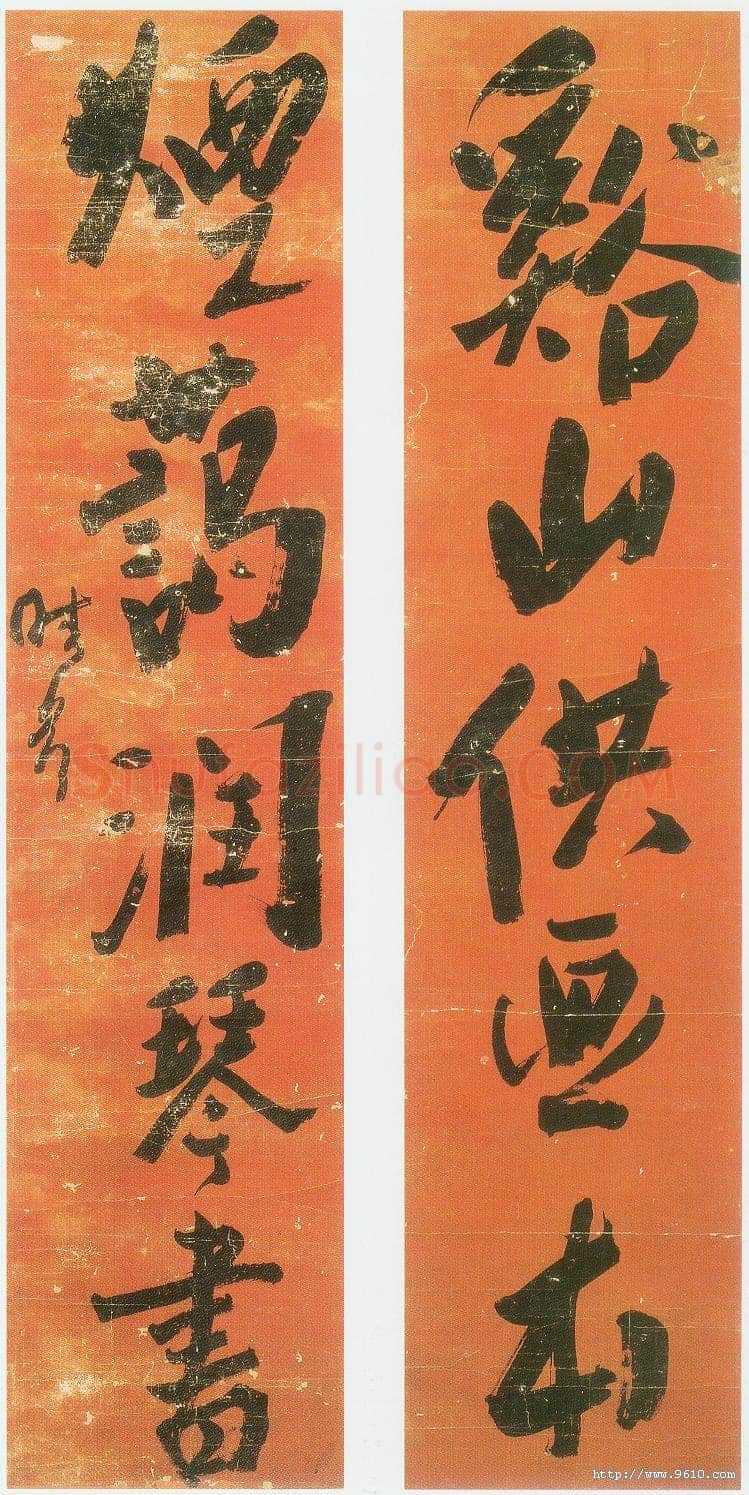 谿山供画本
煙藹润琴書
Shufaziliao.COM
http://www.9610.com